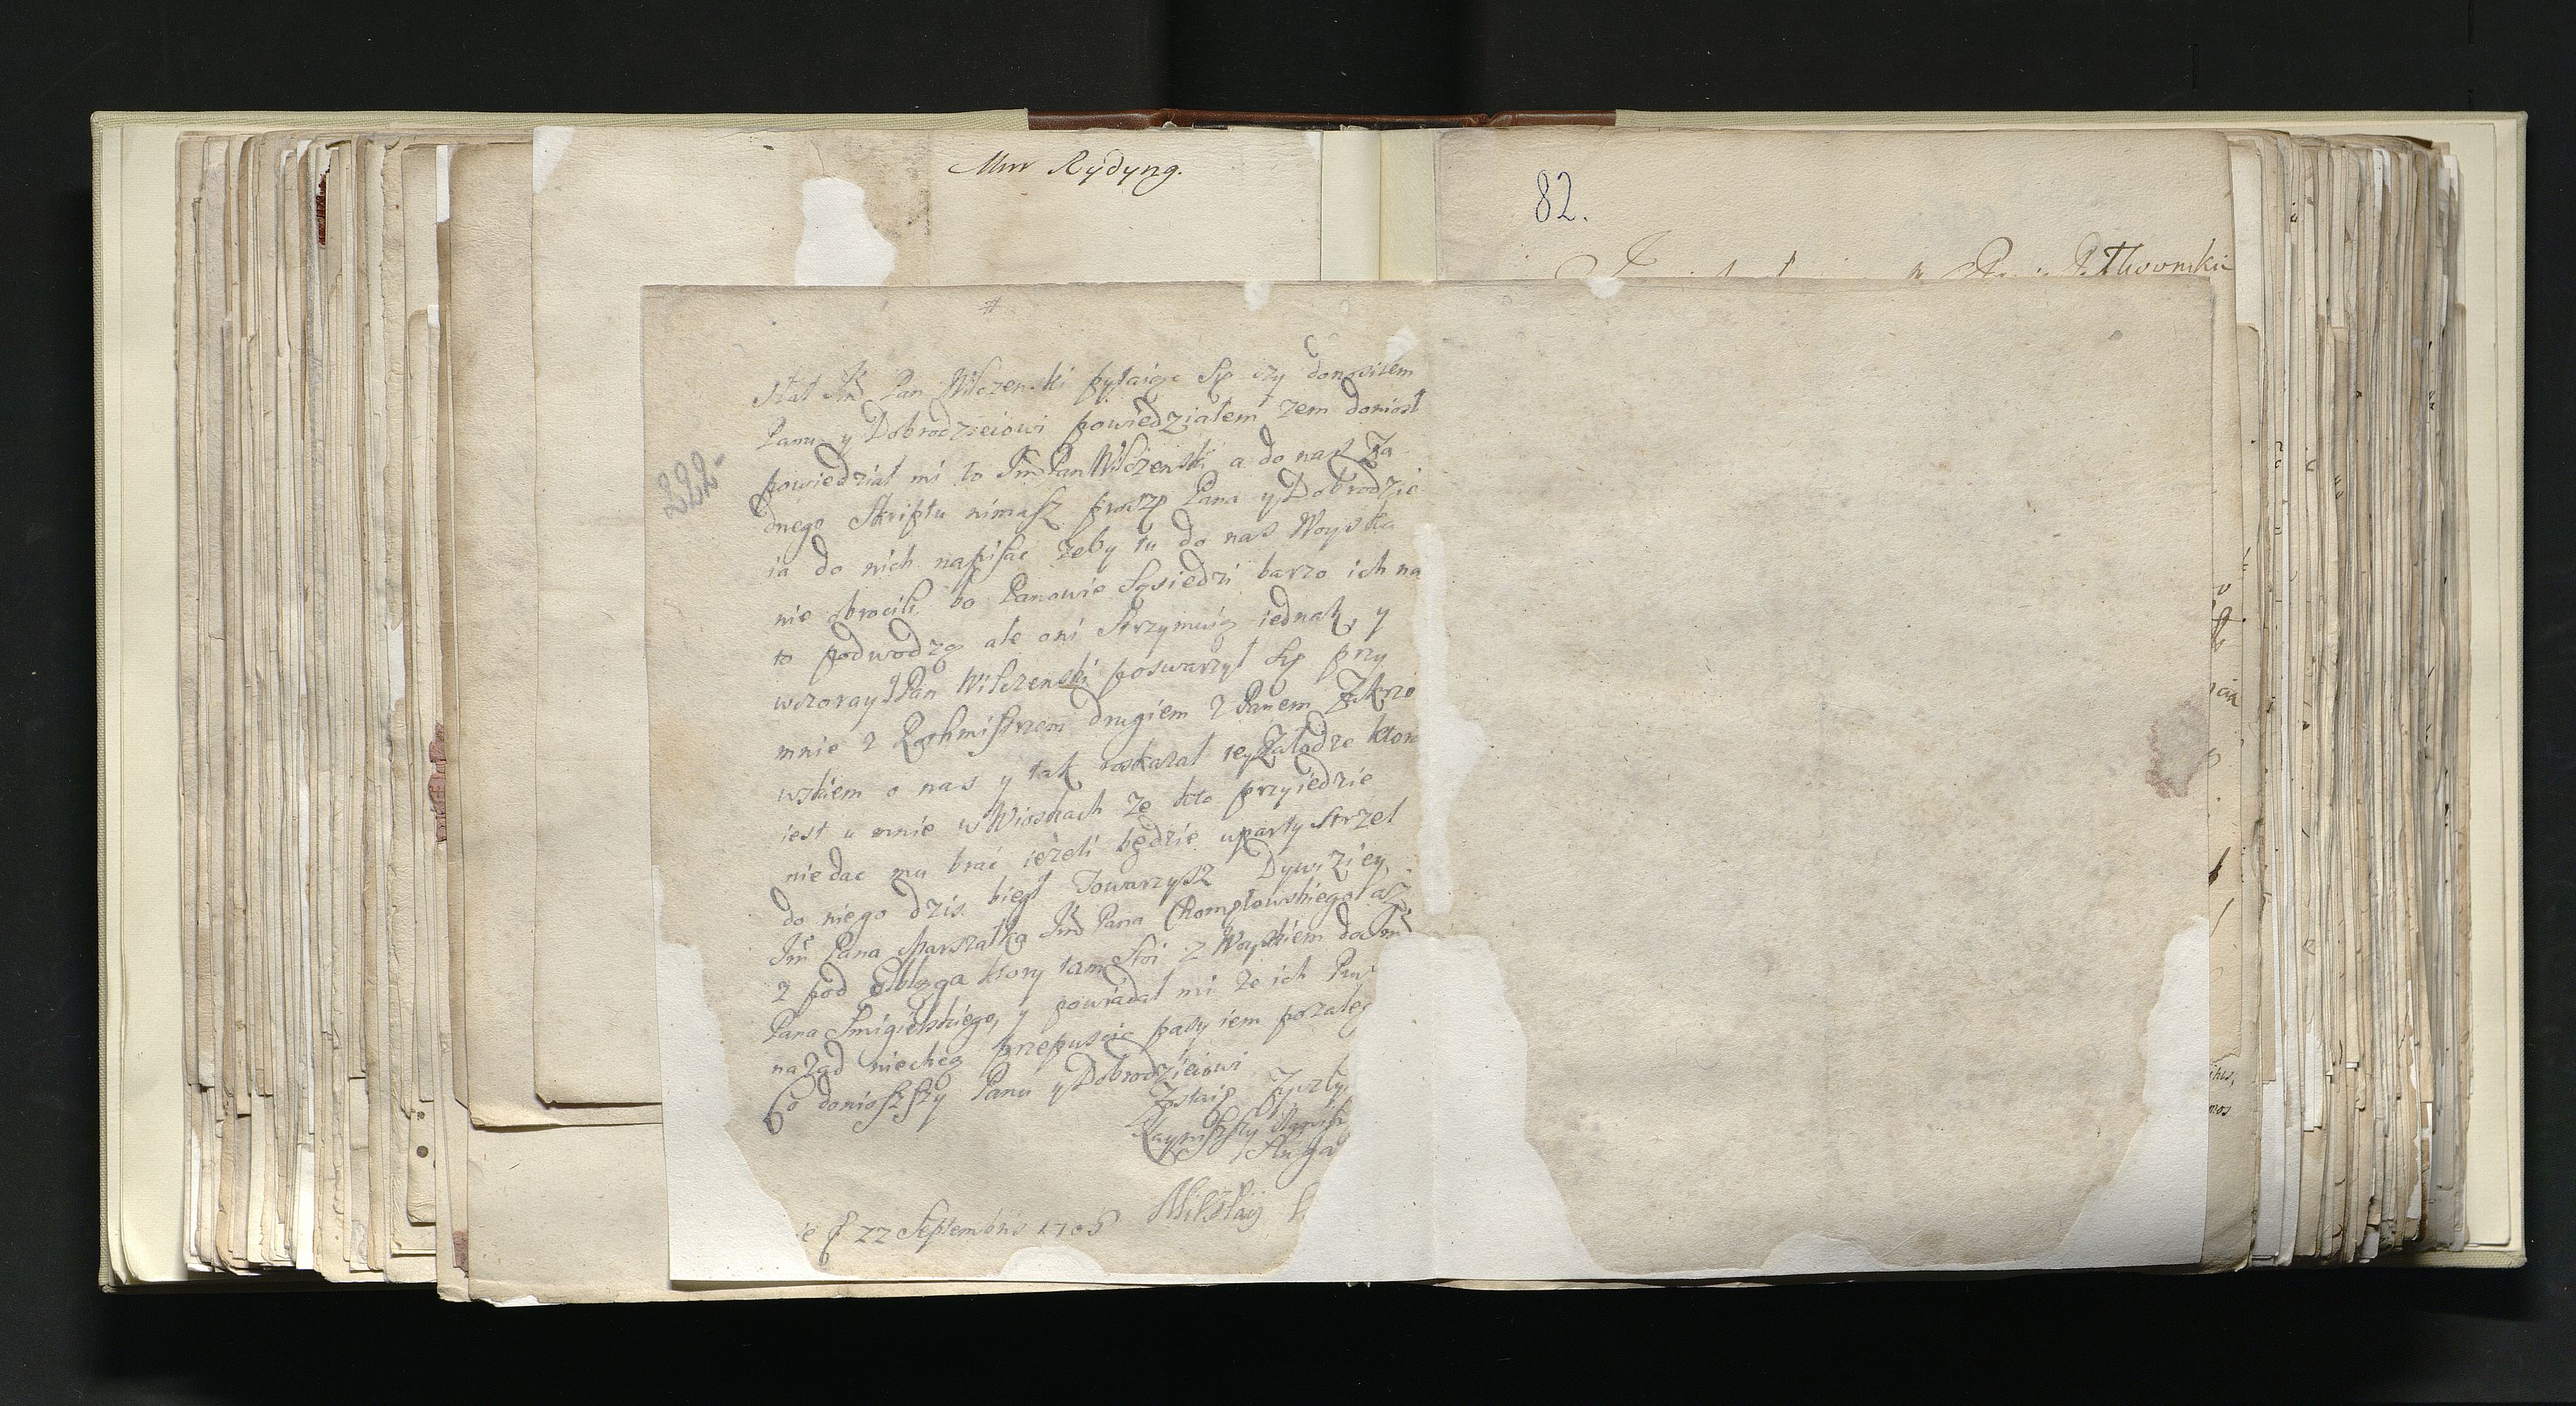 Mnr Rydyng.
82.
222.
#
Stał Jm Pan Wilczenski pytaiąc Się czy donosiłem
Panu y Dobrodzieiowi powiedziałem żem doniosł
powiedział mi to Jm Pan Wilczenski a do nas Ża
dnego Skriptu nimasz proszę Pana y Dobrodzie
ia do nich napisać żeby tu do nas Woyska
nie obrocili bo Panowie Sąsiedzi barzo ich na
to podwodzą ale oni Strzymuią iednak y
wczoray JPan Wilczenski poswarzył Się przy
mnie z Rothmistrzem drugiem z Panem Zakrze
wskiem o nas y tak roskazał tey Załodze ktora
iest u mnie w Wioskach że kto przyiedzie
nie dac mu brać ieżeli będzie uparty Strzel
do niego dzis biegł Towarzysz Dywiziey
Jm Pana Marszałka Jm Pana Chomętowskiego
z pod Elbląga ktory tam Stoi z Woyskiem do Jm
Pana Smigielskiego, y powiadał mi że ich
nazad niechcą przepuscić
Co doniosszy Panu y Dobrodzieiowi
Zstaię
Naynisszy
Sługa
Mikołay
22 Septembris 1705